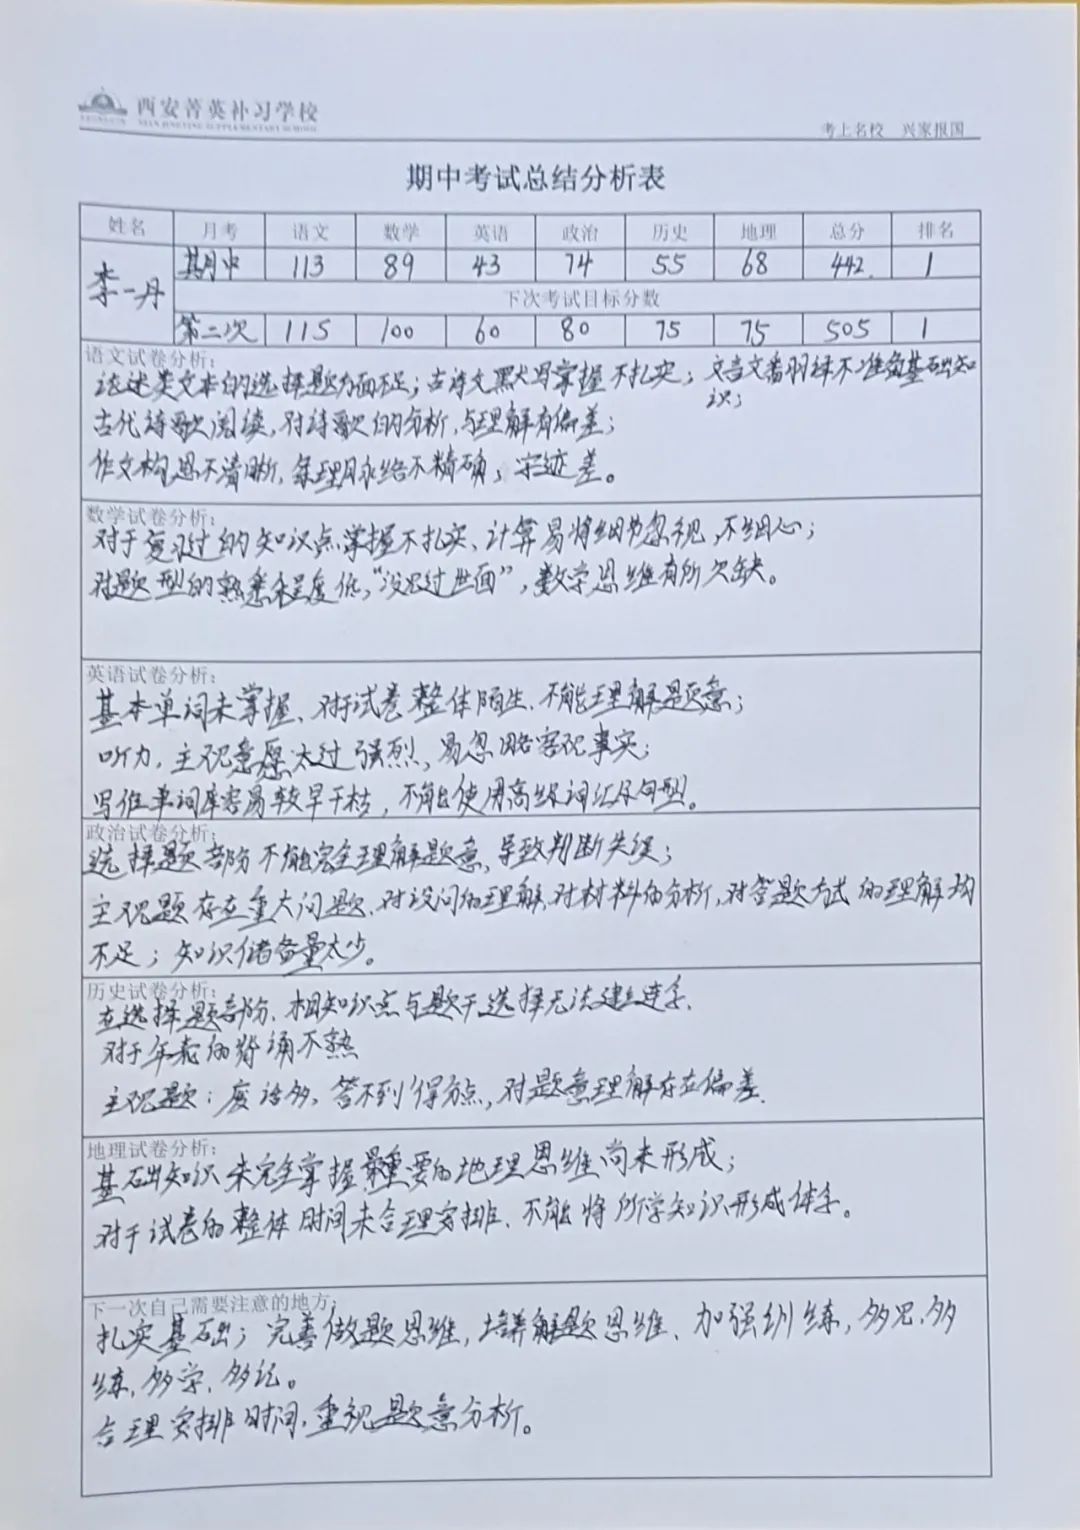 西安菁英补习学校
XIAN JINGYING SUPPLEMENTARY SCHOOL
考上名校 兴家报国
期中考试总结分析表
姓名 月考 语文 数学 英语 政治 历史 地理 总分 排名
李一丹 期中 113 89 43 74 55 68 442. 1
下次考试目标分数
第二次 115 100 60 80 75 75 505 1
语文试卷分析：
论述类文本的选择题方面不足；古诗文默写掌握不扎实；文言文翻译不准确基础知
识；
古代诗歌阅读，对诗歌的分析，与理解有偏差；
作文构思不清晰，条理脉络不精确；字迹差。
数学试卷分析：
对于复习过的知识点掌握不扎实、计算易将细节忽视，不细心；
对题型的熟悉程度低，“没见过世面”，数学思维有所欠缺。
英语试卷分析：
基本单词未掌握、对于试卷整体陌生、不能理解题意；
听力，主观意愿太过强烈，易忽略客观事实；
写作单词库容易较早干枯，不能使用高级词汇及句型。
政治试卷分析：
选择题部份不能完全理解题意，导致判断失误；
主观题存在重大问题，对设问的理解、对材料的分析，对答题方式的理解均
不足；知识储备量太少。
历史试卷分析：
在选择题部份，相知识点与题干选择无法建立连系.
对于年表的背诵不熟
主观题：废话多，答不到得分点，对题意理解存在偏差.
地理试卷分析：
基础知识未完全掌握最重要的地理思维尚未形成；
对于试卷的整体时间未合理安排、不能将所学知识形成体系。
下一次自己需要注意的地方：
扎实基础；完善做题思维，培养解题思维、加强训练，多见，多
练，多学，多记。
合理安排时间，重视题意分析。